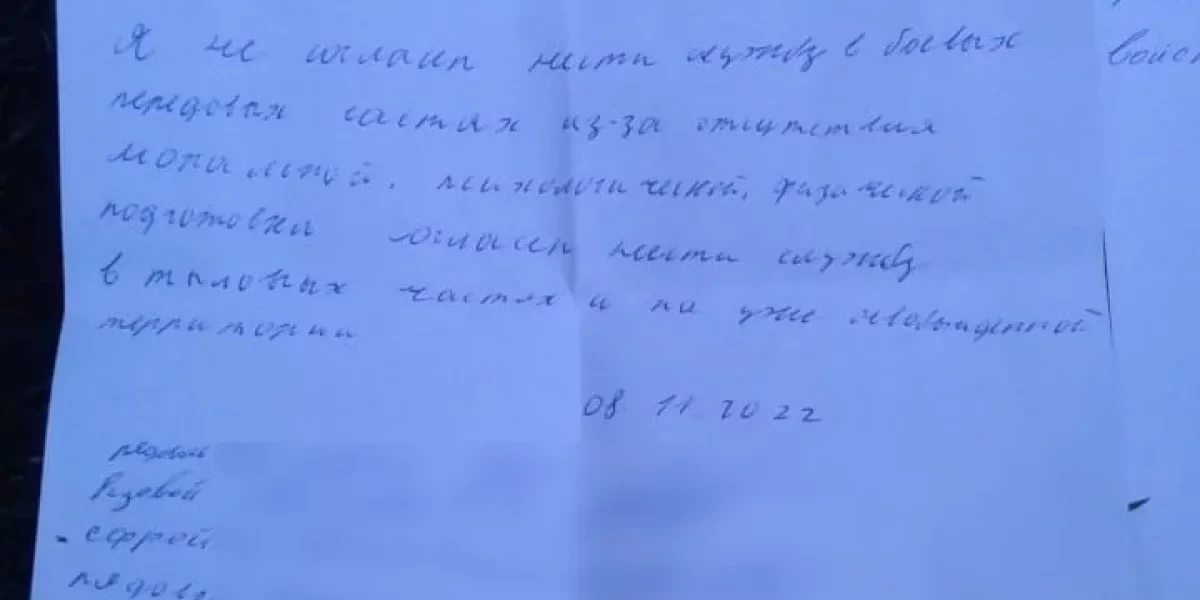 Я не согласен нести службу в боевых
войск
передовых частях из-за отсутствия
моральной, психологической, физической
подготовки согласен нести службу
в тыловых частях и на уже освобожденной
территории
08 11 2022
рядовой